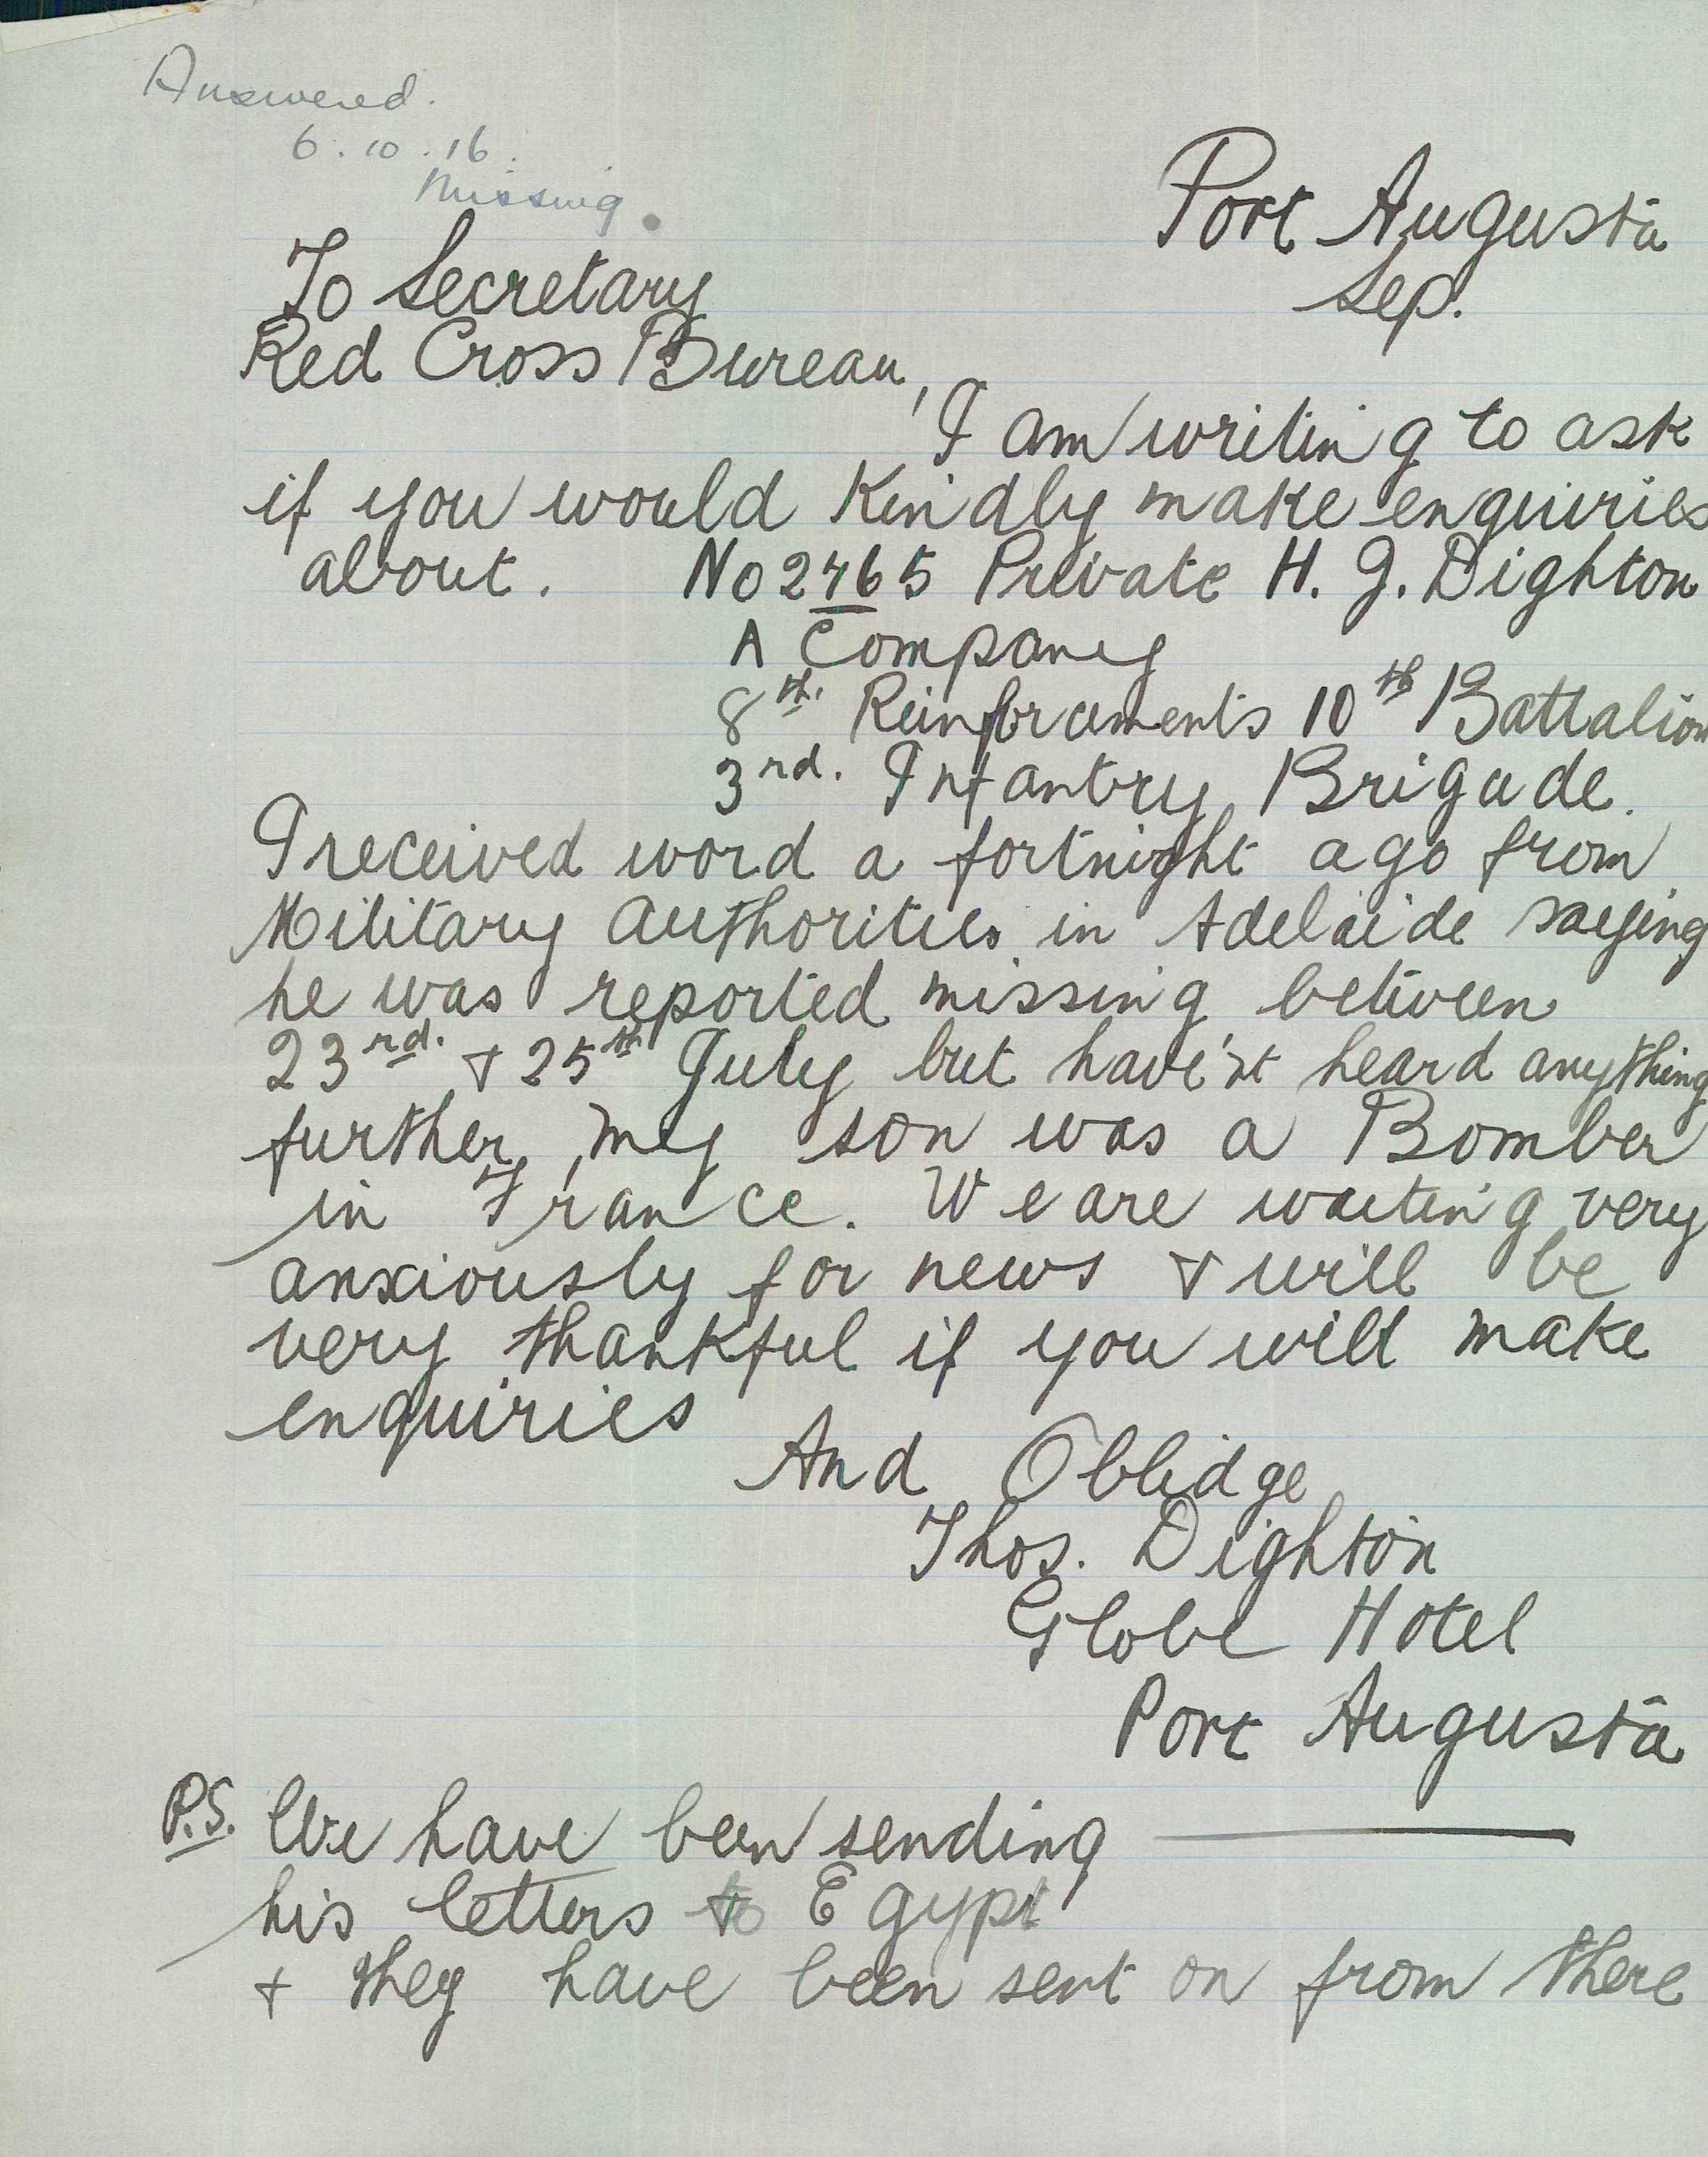 Answered.
6.10.16.
Missing.
Port Augusta
Sep.
To Secretary
Red Cross Bureau,
I am writing to ask
if you would Kindly make enquiries
about. No 2465 Private H. J. Dighton
A Company
8th. Reinforcements 10th Battalion
3rd. Infantry Brigade.
I received word a fortnight ago from
Military Authorities in Adelaide saying
he was reported missing between
23rd. & 25th July but have'nt heard anything
further, my son was a Bomber
in France. We are waiting very
anxiously for news & will be
very thankful if you will make
enquiries
And Oblidge
Thos. Dighton
Globe Hotel
Port Augusta
P.S. We have been sending
his letters to Egypt
& they have been sent on from there